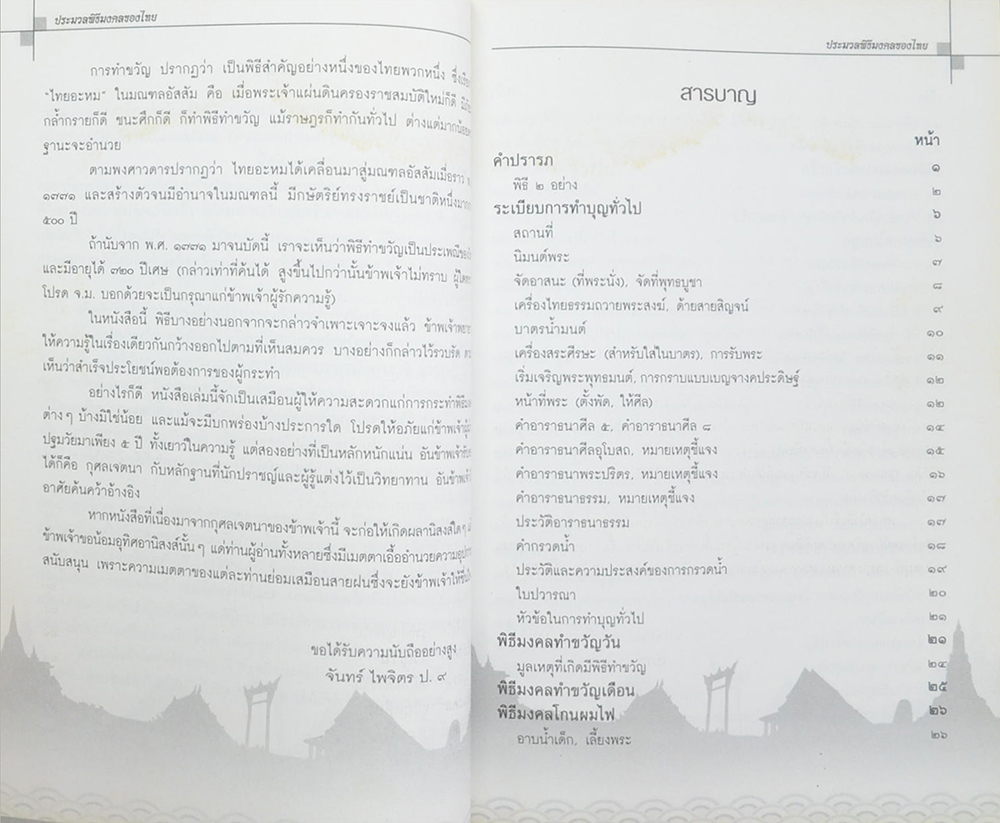 ประมวลพิธีมงคลของไทย
การทำขวัญ ปรากฏว่า เป็นพิธีสำคัญอย่างหนึ่งของไทยพวกหนึ่ง
“ไทยอะหม” ในมณฑลอัสสัม คือ เมื่อพระเจ้าแผ่นดินครองราชสมบัติใหม่ก็ดี
กล้ำกรายก็ดี ชนะศึกก็ดี ก็ทำพิธีทำขวัญ แม้ราษฎรก็ทำกันทั่วไป ต่างแต่มากน้อย
ฐานะจะอำนวย
ตามพงศาวดารปรากฏว่า ไทยอะหมได้เคลื่อนมาสู่มณฑลอัสสัมเมื่อราว
๑๗๗๑ และสร้างตัวจนมีอำนาจในมณฑลนี้ มีกษัตริย์ทรงราชย์เป็นชาติหนึ่ง
๕๐๐ ปี
ถ้านับจาก พ.ศ. ๑๗๗๑ มาจนบัดนี้ เราจะเห็นว่าพิธีทำขวัญเป็นประเพณี
และมีอายุได้ ๗๒๐ ปีเศษ (กล่าวเท่าที่ค้นได้ สูงขึ้นไปกว่านั้นข้าพเจ้าไม่ทราบ
โปรด จ.ม. บอกด้วยจะเป็นกรุณาแก่ข้าพเจ้าผู้รักความรู้)
ในหนังสือนี้ พิธีบางอย่างนอกจากจะกล่าวจำเพาะเจาะจงแล้ว ข้าพเจ้า
ให้ความรู้ในเรื่องเดียวกันกว้างออกไปตามที่เห็นสมควร บางอย่างก็กล่าวไว้รวบรัด
เห็นว่าสำเร็จประโยชน์พอต้องการของผู้กระทำ
อย่างไรก็ดี หนังสือเล่มนี้จักเป็นเสมือนผู้ให้ความสะดวกแก่การกระทำ
ต่างๆ บ้างมิใช่น้อย และแม้จะมีบกพร่องบ้างประการใด โปรดให้อภัยแก่ข้าพเจ้า
ปฐมวัยมาเพียง ๕ ปี ทั้งเยาว์ในความรู้ แต่สองอย่างที่เป็นหลักหนักแน่น อันข้าพเจ้า
ได้ก็คือ กุศลเจตนา กับหลักฐานที่นักปราชญ์และผู้รู้แต่งไว้เป็นวิทยาทาน อันข้าพเจ้า
อาศัยค้นคว้าอ้างอิง
หากหนังสือที่เนื่องมาจากกุศลเจตนาของข้าพเจ้านี้ จะก่อให้เกิดผลานิสงส์ใดๆ
ข้าพเจ้าขอน้อมอุทิศอานิสงส์นั้นๆ แด่ท่านผู้อ่านทั้งหลายซึ่งมีเมตตาเอื้ออำนวยความ
สนับสนุน เพราะความเมตตาของแต่ละท่านย่อมเสมือนสายฝนซึ่งจะยังข้าพเจ้า
ขอได้รับความนับถืออย่างสูง
จันทร์ ไพจิตร ป. ๙
ประมวลพิธีมงคลของไทย
สารบาญ
หน้า
คำปรารภ ๑
พิธี ๒ อย่าง ๒
ระเบียบการทำบุญทั่วไป ๖
สถานที่ ๖
นิมนต์พระ ๗
จัดอาสนะ (ที่พระนั่ง), จัดที่พุทธบูชา ๘
เครื่องไทยธรรมถวายพระสงฆ์, ด้ายสายสิญจน์ ๙
บาตรน้ำมนต์ ๑๐
เครื่องสระศีรษะ (สำหรับใส่ในบาตร), การรับพระ ๑๑
เริ่มเจริญพระพุทธมนต์, การกราบแบบเบญจางคประดิษฐ์ ๑๒
หน้าที่พระ (ตั้งพัด, ให้ศีล) ๑๒
คำอาราธนาศีล ๕, คำอาราธนาศีล ๘ ๑๔
คำอาราธนาศีลอุโบสถ, หมายเหตุชี้แจง ๑๕
คำอาราธนาพระปริตร, หมายเหตุชี้แจง ๑๖
คำอาราธนาธรรม, หมายเหตุชี้แจง ๑๗
ประวัติอาราธนาธรรม ๑๗
คำกรวดน้ำ ๑๘
ประวัติและความประสงค์ของการกรวดน้ำ ๑๙
ใบปวารณา ๒๐
หัวข้อในการทำบุญทั่วไป ๒๑
พิธีมงคลทำขวัญวัน ๒๑
มูลเหตุที่เกิดมีพิธีทำขวัญ ๒๔
พิธีมงคลทำขวัญเดือน ๒๕
พิธีมงคลโกนผมไฟ ๒๖
อาบน้ำเด็ก, เลี้ยงพระ ๒๖